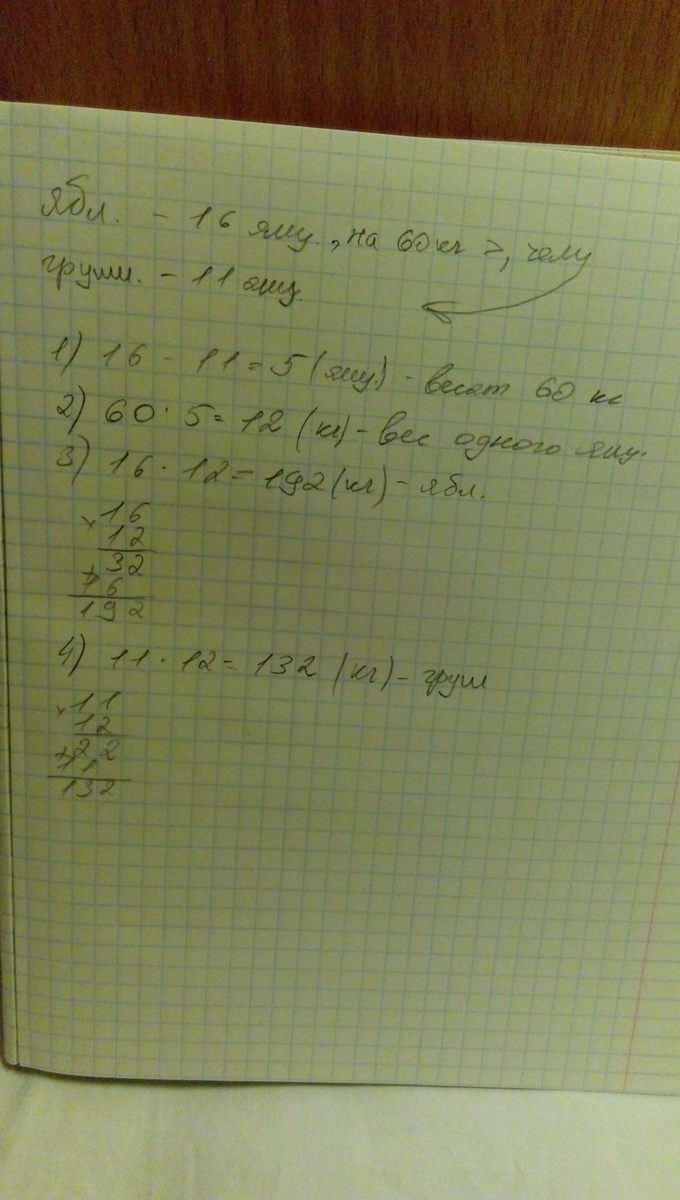 ябл. - 16 ящ., на 60 кг >, чем
груш. - 11 ящ.
1) 16 - 11 = 5 (ящ.) - весят 60 кг
2) 60 : 5 = 12 (кг) - вес одного ящ.
3) 16 · 12 = 192 (кг) - ябл.
× 16
12
32
+ 16
192
4) 11 · 12 = 132 (кг) - груш
× 11
12
22
+ 11
132